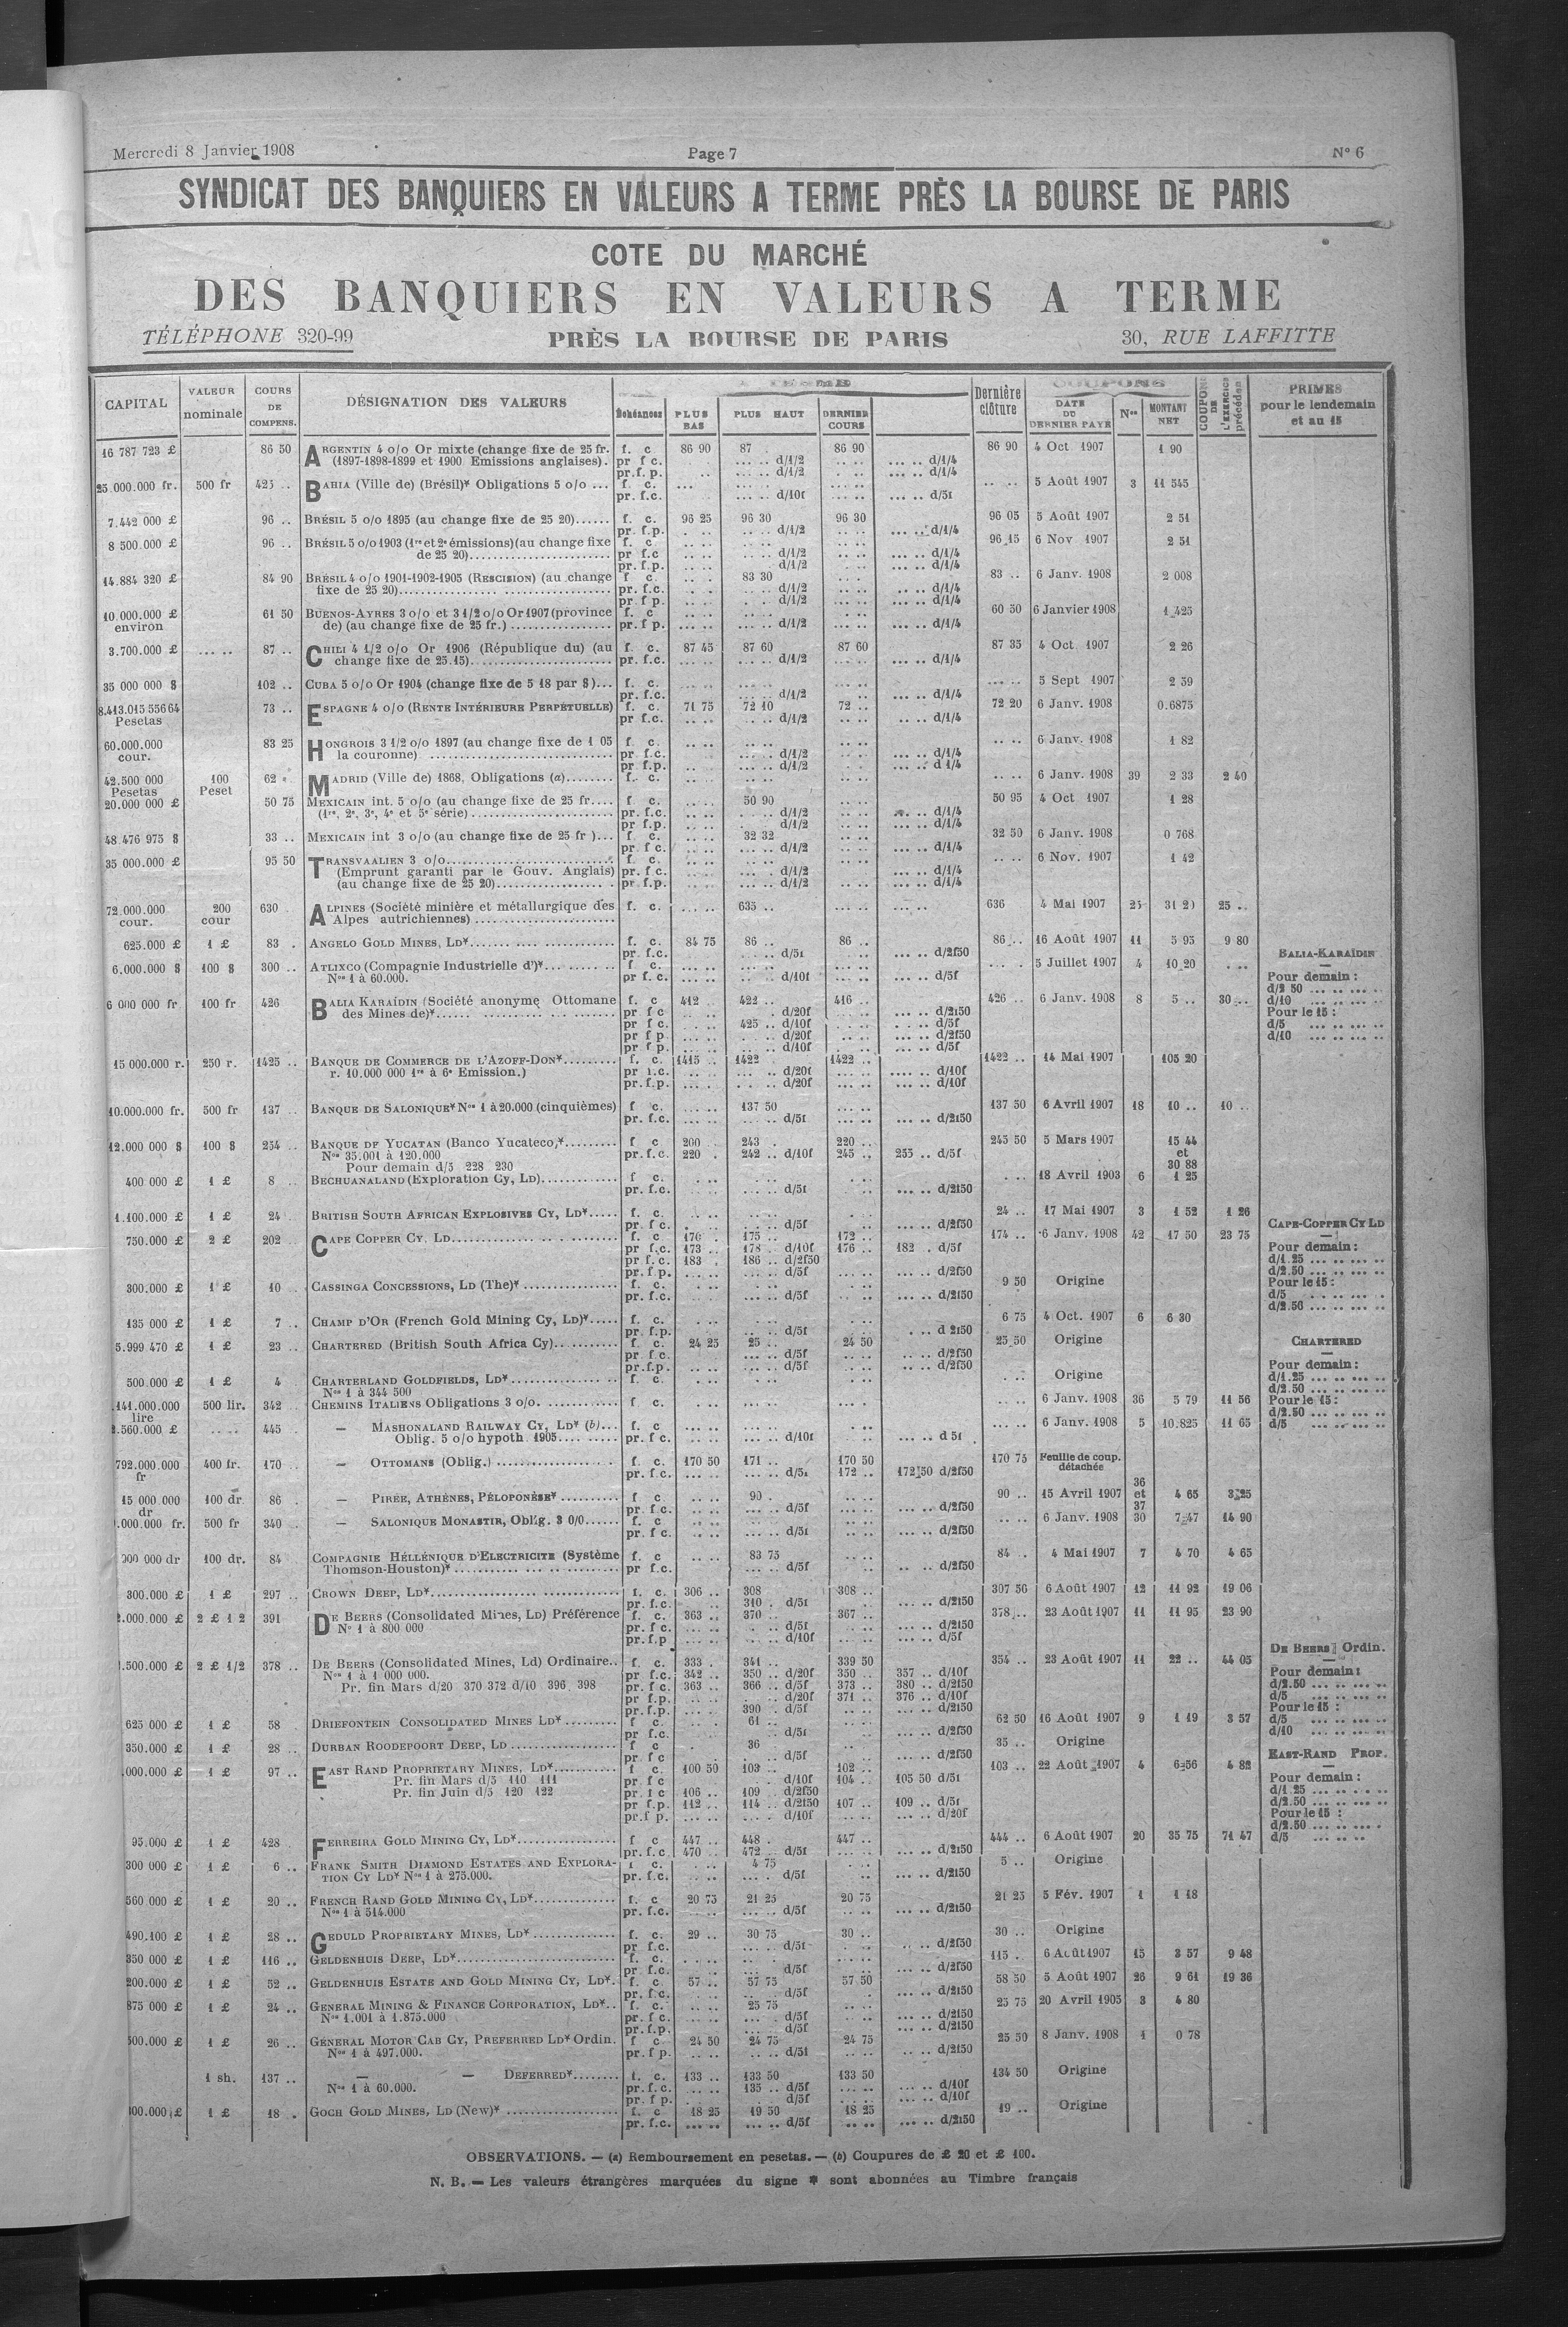 Mercredi 8 Janvier 1908 Page 7 N° 6
SYNDICAT DES BANQUIERS EN VALEURS A TERME PRÈS LA BOURSE DE PARIS
COTE DU MARCHÉ
DES BANQUIERS EN VALEURS A TERME
TÉLÉPHONE 320-99 PRÈS LA BOURSE DE PARIS 30, RUE LAFFITTE
CAPITAL VALEUR nominale COURS DE COMPENS. DÉSIGNATION DES VALEURS Échéances PLUS BAS PLUS HAUT DERNIER COURS Dernière clôture COUPONS DATE DU DERNIER PAYÉ Nos MONTANT NET COUPONS DE L'EXERCICE précédent PRIMES pour le lendemain et au 15
16 787 723 £ 86 50 ARGENTIN 4 o/o Or mixte (change fixe de 25 fr. f. c 86 90 87 . 86 90 86 90 4 Oct 1907 1 90
(1897-1898-1899 et 1900 Emissions anglaises). pr f c. d/1/2 d/1/4
pr. f. p. d/1/2 d/1/4
25.000.000 fr. 500 fr 425 .. BAHIA (Ville de) (Brésil)* Obligations 5 o/o ... f c. 5 Août 1907 3 11 545
pr. f.c. d/10f d/5f
7.442 000 £ 96 .. BRÉSIL 5 o/o 1895 (au change fixe de 25 20)...... f. c. 96 25 96 30 96 30 96 05 5 Août 1907 2 51
pr. f.p. d/1/2 d/1/4
8 500.000 £ 96 .. BRÉSIL 5 o/o 1903 (1re et 2e émissions) (au change fixe f. c 96 15 6 Nov 1907 2 51
de 25 20)........ pr f.c d/1/2 d/1/4
pr. f.p. d/1/2 d/1/4
14.884 320 £ 84 90 BRÉSIL 4 o/o 1901-1902-1905 (RESCISION) (au change f c. 83 30 83 .. 6 Janv. 1908 2 008
fixe de 25 20)........ pr. f.c. d/1/2 d/1/4
pr. f p. d/1/2 d/1/4
10.000.000 £ 61 50 BUENOS-AYRES 3 o/o et 3 1/2 o/o Or 1907 (province f. c 60 50 6 Janvier 1908 1 425
environ de) (au change fixe de 25 fr.) ........ pr. f p. d/1/2 d/1/4
3.700.000 £ 87 .. CHILI 4 1/2 o/o Or 1906 (République du) (au f c. 87 45 87 60 87 60 87 35 4 Oct 1907 2 26
change fixe de 25.15)........ pr. f.c. d/1/2 d/1/4
35 000 000 $ 102 .. CUBA 5 o/o Or 1904 (change fixe de 5 18 par $)... f. c. 5 Sept 1907 2 59
pr. f.c. d/1/2 d/1/4
8.413.015 556 64 73 .. ESPAGNE 4 o/o (RENTE INTÉRIEURE PERPÉTUELLE) f. c. 71 75 72 10 72 .. 72 20 6 Janv. 1908 0.6875
Pesetas pr f.c. d/1/2 d/1/4
60.000.000 83 25 HONGROIS 3 1/2 o/o 1897 (au change fixe de 1 05 f c. 6 Janv. 1908 1 82
cour. la couronne) ........ pr f.c. d/1/2 d/1/4
pr f.p. d/1/2 d 1/4
42.500 000 100 62 MADRID (Ville de) 1868, Obligations (a)........ f. c. 6 Janv. 1908 39 2 33 2 40
Pesetas Peset
20.000 000 £ 50 75 MEXICAIN int. 5 o/o (au change fixe de 25 fr.... f c. 50 90 50 95 4 Oct 1907 1 28
(1re, 2e, 3e, 4e et 5e série) ........ pr. f.c. d/1/2 d/1/4
pr f.p. d/1/2 d/1/4
48 476 975 $ 33 .. MEXICAIN int 3 o/o (au change fixe de 25 fr )... f c. 32 32 32 50 6 Janv. 1908 0 768
pr f c. d/1/2 d/1/4
35 000.000 £ 95 50 TRANSVAALIEN 3 o/o........ f c. 6 Nov. 1907 1 42
(Emprunt garanti par le Gouv. Anglais) pr. f c. d/1/2 d/1/4
(au change fixe de 25 20)........ pr f.p. d/1/2 d/1/4
72.000.000 200 630 ALPINES (Société minière et métallurgique des f. c. 635 .. 636 4 Mai 1907 25 25 ..
cour. cour Alpes autrichiennes) ........
625.000 £ 1 £ 83 . ANGELO GOLD MINES, LD*........ f. c. 84 75 86 .. 86 .. 86 .. 16 Août 1907 11 5 95 9 80
pr f.c. d/5f d/2f50 BALIA-KARAÏDIN
6.000.000 $ 100 $ 300 .. ATLIXCO (Compagnie Industrielle d')*........ f c. 5 Juillet 1907 4 10 20
Nos 1 à 60.000. pr f. c. d/10f d/5f Pour demain :
d/2 50
6 000 000 fr 100 fr 426 BALIA KARAÏDIN (Société anonyme Ottomane f. c 412 .. 422 .. 416 .. 426 .. 6 Janv. 1908 8 5 .. 30 .. d/10
des Mines de)*........ pr f c d/20f d/2f50 Pour le 15 :
pr f c. 425 .. d/10f d/5f d/5
pr f p d/20f d/2f50 d/10
pr f p. d/10f d/5f
15 000.000 r. 250 r. 1425 .. BANQUE DE COMMERCE DE L'AZOFF-DON*........ f. c. 1415 .. 1422 1422 .. 1422 .. 14 Mai 1907 105 20
r. 10.000 000 1re à 6e Emission.) pr f.c. d/20f d/10f
pr. f.p. d/20f d/10f
10.000.000 fr. 500 fr 137 .. BANQUE DE SALONIQUE* Nos 1 à 20.000 (cinquièmes) f c. 137 50 137 50 6 Avril 1907 18 10 .. 10 ..
pr. f.c. d/5f d/2f50
12.000 000 $ 100 $ 254 .. BANQUE DE YUCATAN (Banco Yucateco)*........ f c 200 243 . 220 .. 245 50 5 Mars 1907 15 44
Nos 35.001 à 120.000 pr. f.c. 220 . 242 .. d/10f 245 .. 255 .. d/5f et
Pour demain d/5 228 230 30 88
400 000 £ 1 £ 8 .. BECHUANALAND (Exploration Cy, LD)........ f c. 18 Avril 1903 6 1 25
pr. f.c. d/5f d/2f50
1.100.000 £ 1 £ 24 BRITISH SOUTH AFRICAN EXPLOSIVES CY, LD*..... f. c. 24 .. 17 Mai 1907 3 1 52 1 26
pr f c. d/5f d/2f50 CAPE-COPPER CY LD
750.000 £ 2 £ 202 .. CAPE COPPER CY, LD........ f. c 170 . 175 .. 172 .. 174 .. 6 Janv. 1908 42 17 50 23 75
pr f.c. 173 .. 178 . d/10f 176 .. 182 . d/5f Pour demain :
pr f. c. 183 . 186 .. d/2f50 d/1.25
pr. f.p. d/5f d/2f50 d/2.50
300.000 £ 1 £ 10 .. CASSINGA CONCESSIONS, LD (The)* ........ f. c. 9 50 Origine Pour le 15 :
pr. f.c. d/5f d/2f50 d/5
d/2.50
135 000 £ 1 £ 7 .. CHAMP D'OR (French Gold Mining Cy, LD)*..... f. c. 6 75 4 Oct. 1907 6 6 30
pr. f.p. d/5f d 2f50
5.999 470 £ 1 £ 23 .. CHARTERED (British South Africa Cy)........ f. c. 24 25 25 .. 24 50 25 50 Origine CHARTERED
pr f c. d/5f d/2f50
pr.f.p. d/5f d/2f50 Pour demain :
500.000 £ 1 £ 4 CHARTERLAND GOLDFIELDS, LD*........ f. c. Origine d/1.25
Nos 1 à 344 500 d/2.50
.141.000.000 500 lir. 342 .. CHEMINS ITALIENS Obligations 3 o/o. ........ f c. 6 Janv. 1908 36 5 79 11 56 Pour le 15 :
lire d/2.50
2.560.000 £ 445 .. — MASHONALAND RAILWAY CY, LD* (b)... f. c 6 Janv. 1908 5 10.825 11 65 d/5
Oblig. 5 o/o hypoth. 1905........ pr. f c. d/10f d 5f
792.000.000 400 fr. 170 .. — OTTOMANS (Oblig.) ........ f. c. 170 50 171 .. 170 50 170 75 Feuille de coup.
fr pr. f.c. d/5f 172 .. 172 50 d/2f50 détachée
15 000 000 100 dr 86 . — PIRÉE, ATHÈNES, PÉLOPONÈSE* ........ f c 90 . 90 .. 15 Avril 1907 36 et 37 4 65 3 25
dr pr f c. d/5f d/2f50
.000.000 fr. 500 fr 340 . — SALONIQUE MONASTIR, Oblig. 3 0/0...... f. c 6 Janv. 1908 30 7 47 14 90
pr. f c. d/5f d/2f50
000 000 dr 100 dr. 84 COMPAGNIE HELLÉNIQUE D'ELECTRICITE (Système f. c 83 75 84 .. 4 Mai 1907 7 4 70 4 65
Thomson-Houston)* ........ pr f.c. d/5f d/2f50
300.000 £ 1 £ 297 .. CROWN DEEP, LD*........ f. c. 306 .. 308 308 .. 307 50 6 Août 1907 12 11 92 19 06
pr. f.c. 310 . d/5f d/2f50
.000.000 £ 2 £ 1 2 391 DE BEERS (Consolidated Mines, LD) Préférence f. c. 363 .. 370 .. 367 .. 378 .. 23 Août 1907 11 11 95 23 90
N° 1 à 800 000 pr. f c. d/5f d/2f50
pr. f.p d/10f d/5f
DE BEERS Ordin.
.500.000 £ 2 £ 1/2 378 .. DE BEERS (Consolidated Mines, Ld) Ordinaire.. f. c. 333 . 341 .. 339 50 354 .. 23 Août 1907 11 22 .. 44 05
Nos 1 à 1 000 000. pr f.c. 342 .. 350 .. d/20f 350 .. 357 .. d/10f Pour demain :
Pr. fin Mars d/20 370 372 d/10 396 398 pr. f c. 363 .. 366 .. d/5f 373 .. 380 .. d/2f50 d/2.50
pr f.p. d/20f 371 .. 376 .. d/10f d/5
pr. f.p. 390 . d/5f d/2f50 Pour le 15 :
625 000 £ 1 £ 58 . DRIEFONTEIN CONSOLIDATED MINES LD* ........ f c. 61 .. 62 50 16 Août 1907 9 1 19 3 57 d/5
pr f.c. d/5f d/2f50 d/10
350.000 £ 1 £ 28 .. DURBAN ROODEPOORT DEEP, LD ........ f c 36 35 .. Origine
pr f c d/5f d/2f50 EAST-RAND PROP.
.000.000 £ 1 £ 97 .. EAST RAND PROPRIETARY MINES, LD*........ f c. 100 50 103 .. 102 .. 103 .. 22 Août 1907 4 6 56 4 82
Pr. fin Mars d/5 110 111 pr f c d/10f 104 .. 105 50 d/5f Pour demain :
Pr. fin Juin d/5 120 122 pr. f c 106 .. 109 d/2f50 d/1 25
pr f.p. 112 .. 114 .. d/2f50 107 .. 109 .. d/5f d/2.50
pr.f p. d/10f d/20f Pour le 15 :
d/2.50
95.000 £ 1 £ 428 FERREIRA GOLD MINING CY, LD*........ f c 447 .. 448 . 447 .. 444 .. 6 Août 1907 20 35 75 71 47 d/5
pr. f.c 470 .. 472 .. d/5f d/2f50
300 000 £ 1 £ 6 .. FRANK SMITH DIAMOND ESTATES AND EXPLORA- f c. 4 75 5 .. Origine
TION CY LD* Nos 1 à 275.000. pr. f.c. d/5f d/2f50
560 000 £ 1 £ 20 .. FRENCH RAND GOLD MINING CY, LD*........ f. c 20 75 21 25 20 75 21 25 5 Fév. 1907 1 1 18
Nos 1 à 514.000 pr. f.c. d/5f d/2f50
490.100 £ 1 £ 28 .. GEDULD PROPRIETARY MINES, LD* ........ f. c. 29 .. 30 75 30 .. 30 .. Origine
pr f.c. d/5f d/2f50
350 000 £ 1 £ 116 .. GELDENHUIS DEEP, LD*........ f. c. 115 . 6 Août 1907 15 3 57 9 48
pr f.c. d/5f d/2f50
200.000 £ 1 £ 52 .. GELDENHUIS ESTATE AND GOLD MINING CY, LD*. f. c 57 .. 57 75 57 50 58 50 5 Août 1907 26 9 61 19 36
pr. f.c. d/5f d/2f50
875 000 £ 1 £ 24 .. GENERAL MINING & FINANCE CORPORATION, LD*.. f. c. 25 75 25 75 20 Avril 1905 3 4 80
Nos 1.001 à 1.875.000 pr. f c. d/5f d/2f50
pr. f.p. d/5f d/2f50
500.000 £ 1 £ 26 .. GÉNÉRAL MOTOR CAB CY, PREFERRED LD* Ordin. f c 24 50 24 75 24 75 25 50 8 Janv. 1908 1 0 78
Nos 1 à 497.000. pr. f p. d/5f d/2f50
1 sh. 137 .. — — DEFERRED*........ f. c. 133 .. 133 50 133 50 134 50 Origine
Nos 1 à 60.000. pr. f. c. 135 .. d/5f d/10f
pr. f p. d/5f d/10f
100.000 £ 1 £ 18 . GOCH GOLD MINES, LD (New)* ........ f. c 18 25 19 50 18 25 19 .. Origine
pr. f.c. d/5f d/2f50
OBSERVATIONS. — (a) Remboursement en pesetas. — (b) Coupures de £ 20 et £ 100.
N. B. — Les valeurs étrangères marquées du signe * sont abonnées au Timbre français